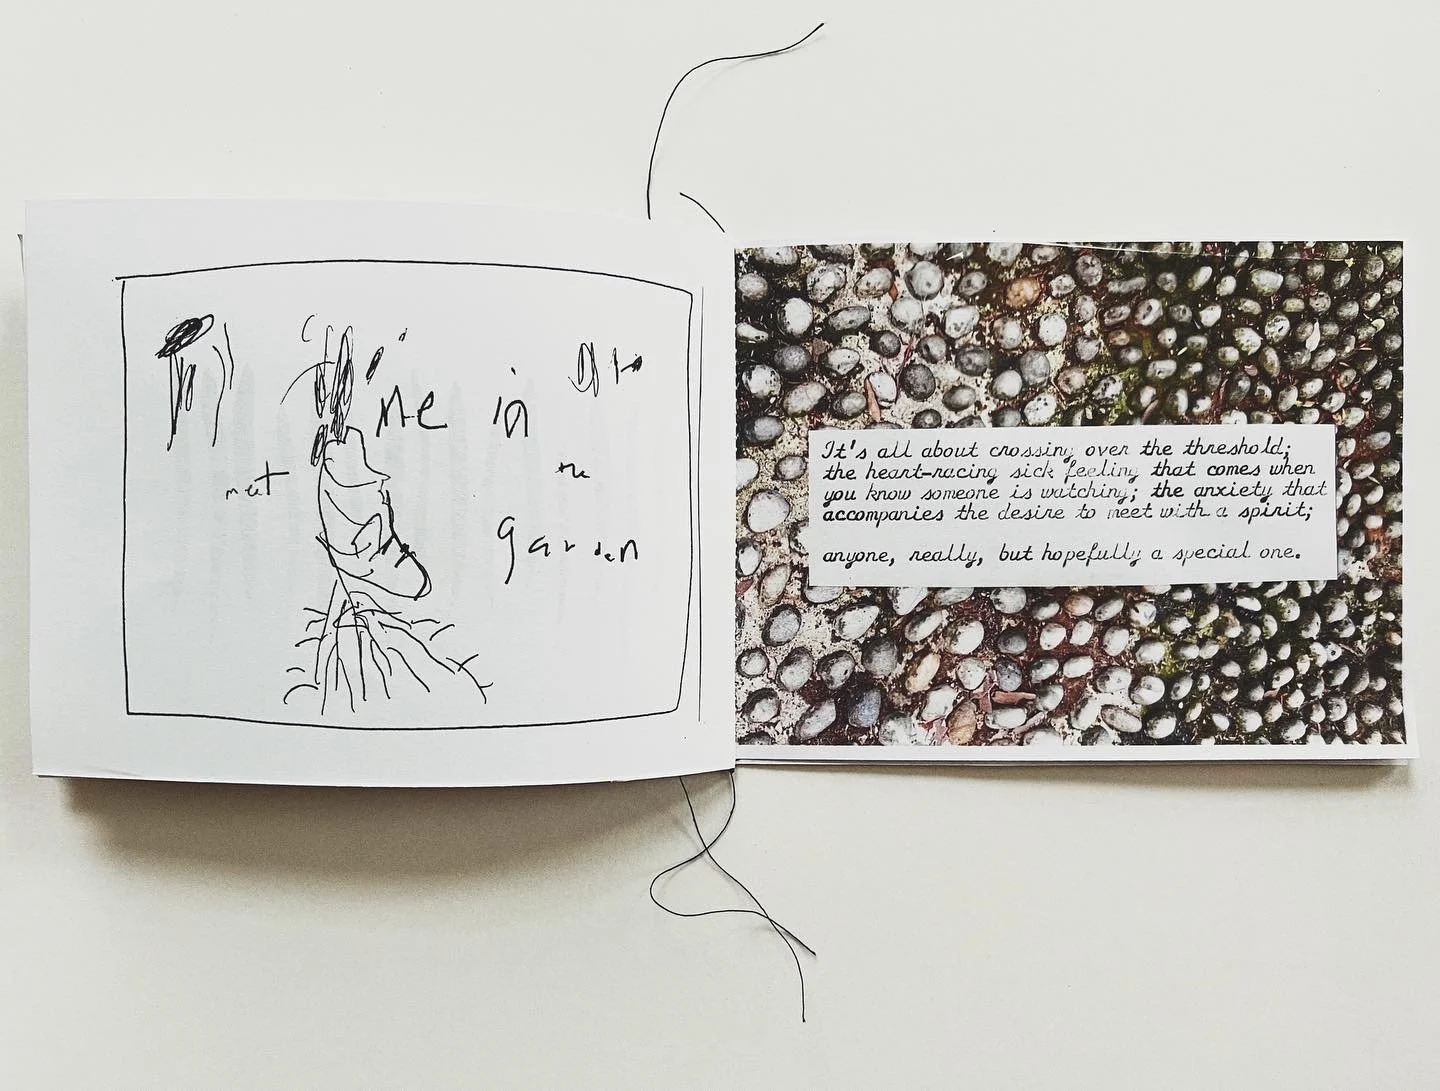 me in
meet
the
garden
It's all about crossing over the threshold;
the heart-racing sick feeling that comes when
you know someone is watching; the anxiety that
accompanies the desire to meet with a spirit;
anyone, really, but hopefully a special one.